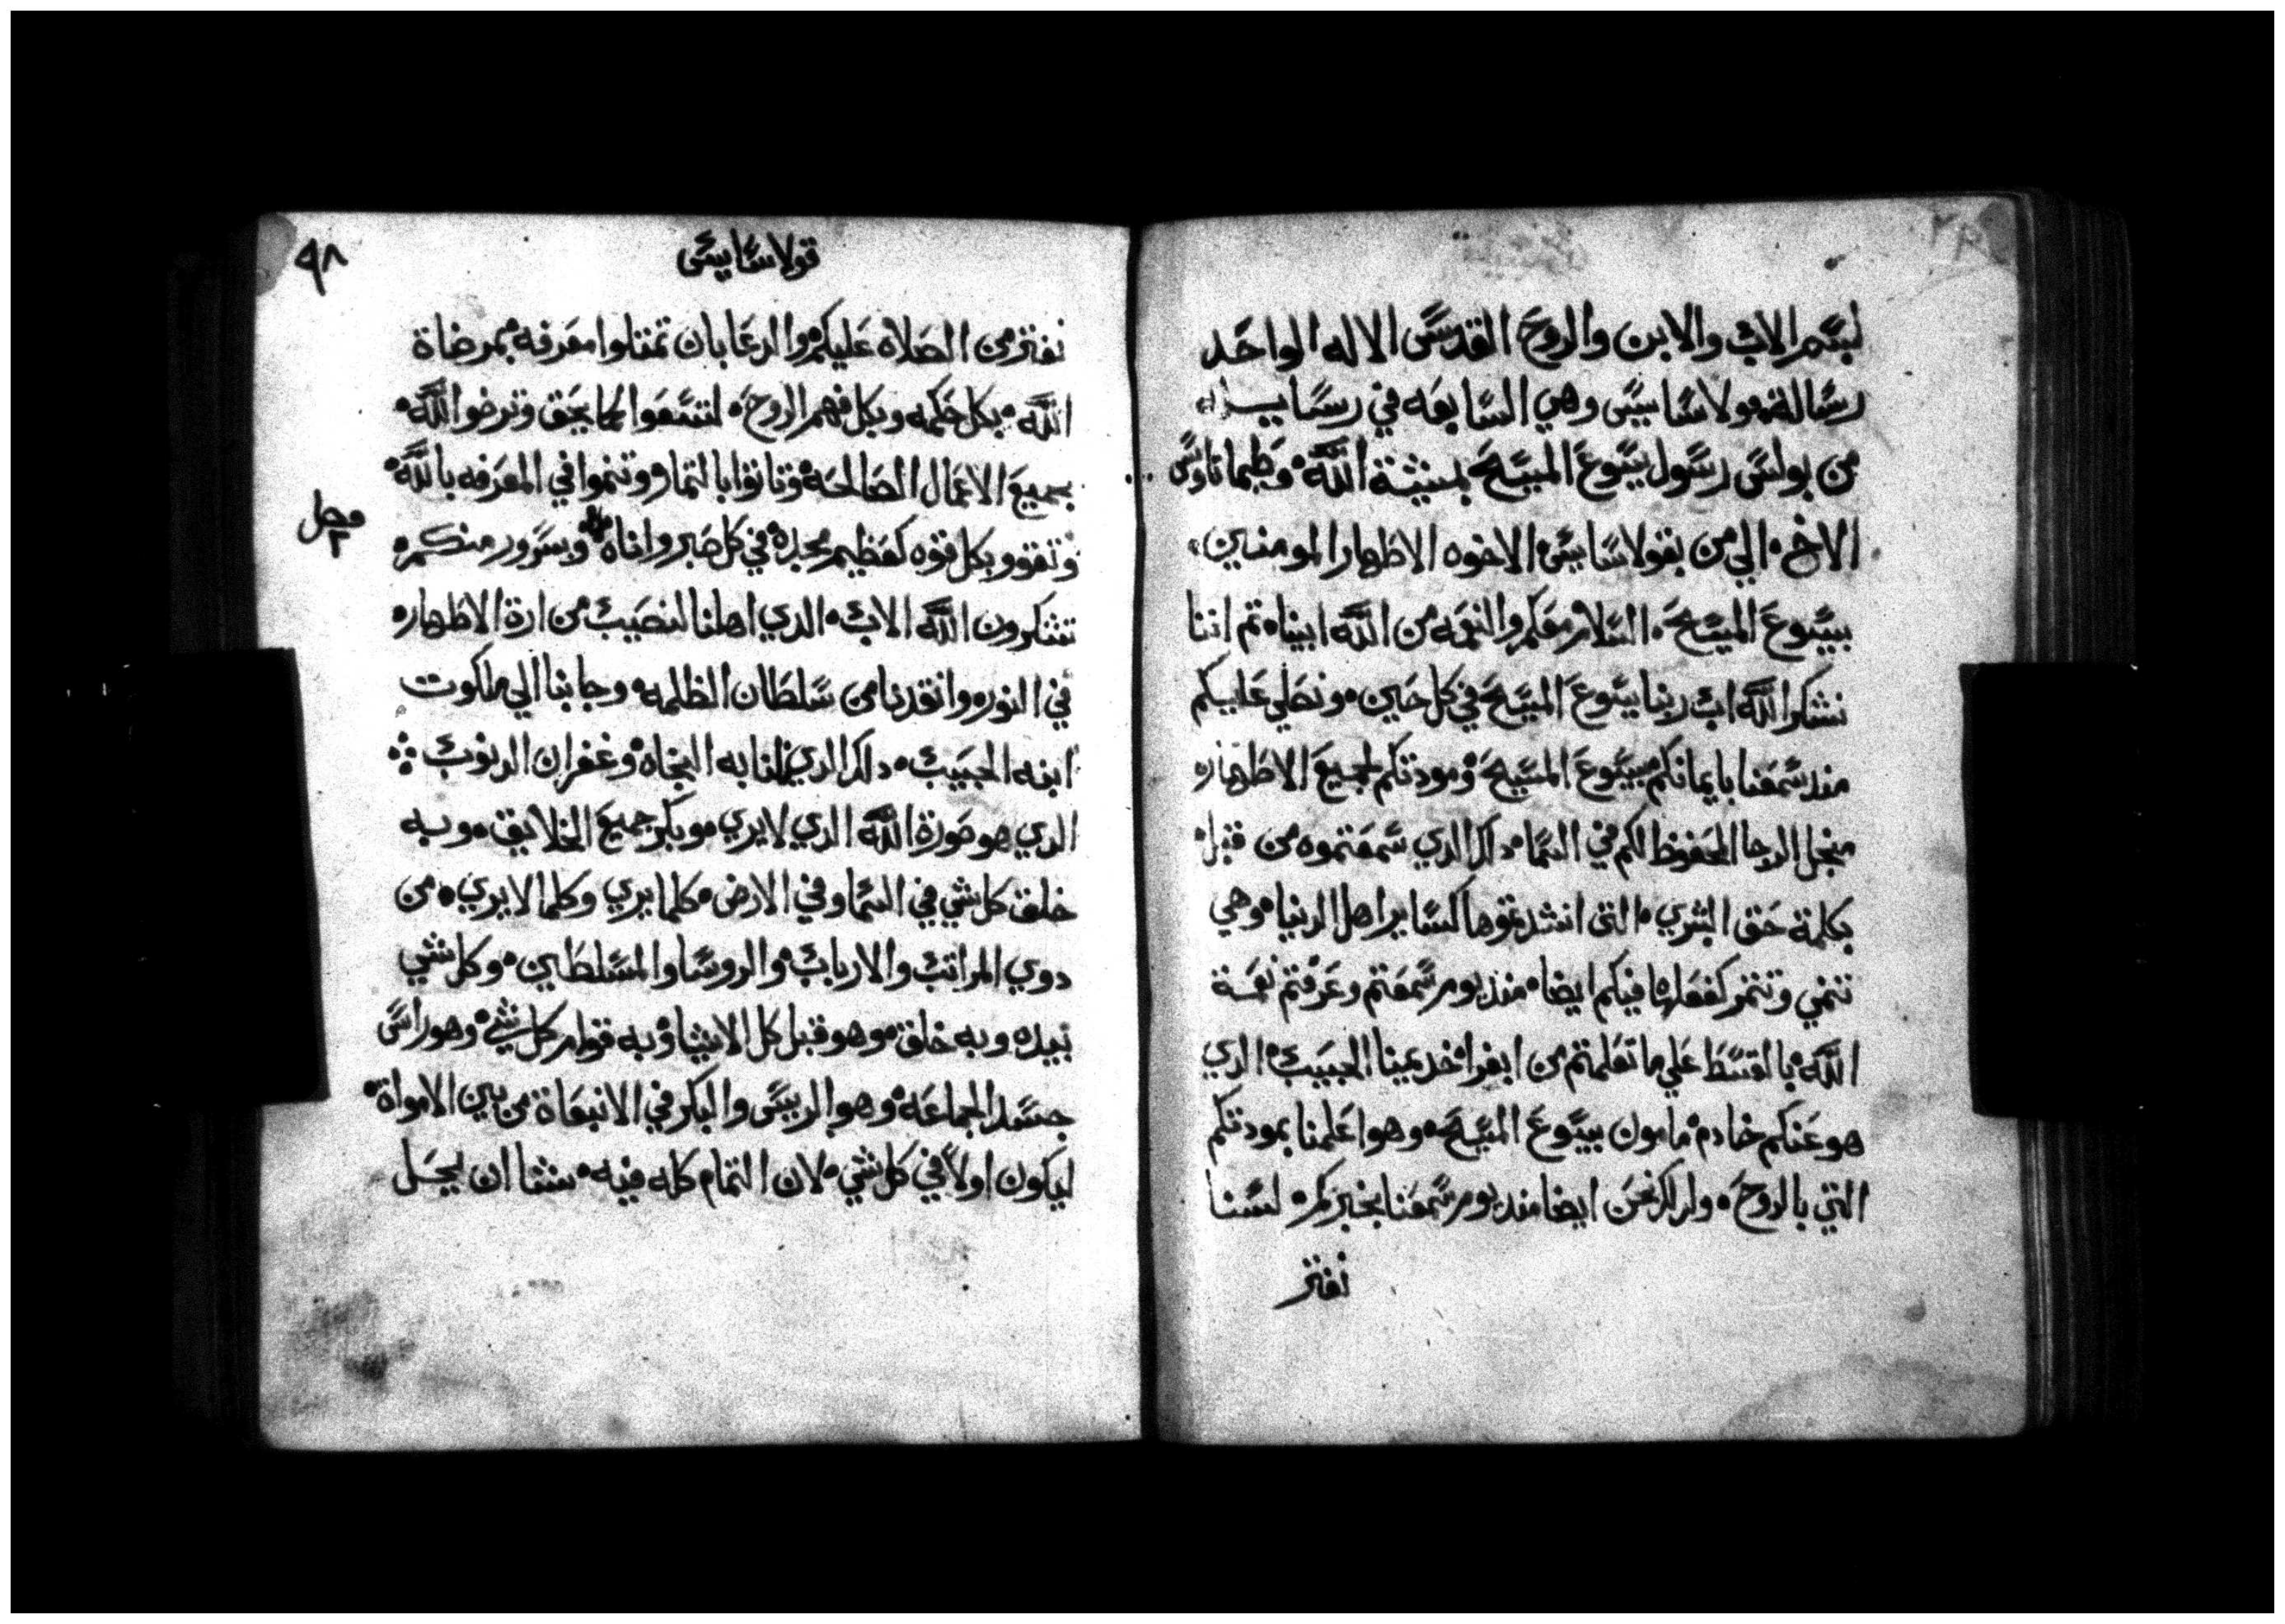 لبسم الاب والابن والروح القدس الاله الواحد
رسالة قولاسايس وهي السابعه في رسايـــله
من بولس رسول يسوع المسيح بمشيئة الله وطيماتاوس
الاخ الي من بقولاسايس الاخوه الاطهار المومنين
بيسوع المسيح السلام معكم والنعمه من الله ابيناه تم اننا
نشكر الله اب ربنا يسوع المسيح في كل حين ونصلي عليكم
مند سمعنا بايمانكم بيسوع المسيح ومودتكم لجميع الاطهاره
منجل الرجا المحفوظ لكم في السماء دلك الدي سمعتموه من قبل
بكلمة حق البشري التي انشدتموها لساير اهل الدنيا وهي
تنمي وتتمر كفعلها فيكم ايضا مند يوم سمعتم وعرفتم نعمة
الله بالقسط علي ما تعلمتم من ابفرا خديمنا الحبيب الدي
هو عنكم خادم مامون بيسوع المسيح وهو اعلمنا بمودتكم
التي بالروح ولدلك نحن ايضا مند يوم سمعنا بخبركم لسنا
نفتر
٩٨
قولاسايس
نفتر من الصلاه عليكم والدعا بان تمتلوا معرفه بمرضاة
الله بكل حكمه وبكل فهم الروح لتسعوا كما يحق وترضوا الله
بجميع الاعمال الصالحه وتاتوا بالتمار وتنموا في المعرفه بالله
وتقوو بكل قوه كعظيم مجده في كل صبر واناه وبسرور منكم
تشكرون الله الاب الدي اهلنا لنصيب من ارة الاطهاره
في النوره وانقدنا من سلطان الظلمه وجا بنا الي ملكوت
ابنه الحبيب دلك الدي نلنا به النجاه وغفران الدنوب
الدي هو صورة الله الدي لا يري وبكر جميع الخلايق وبه
خلق كل شي في السما وفي الارض كلما يري وكلما لا يري من
دوي المراتب والارباب والروسا والمسلطين وكل شي
بيده وبه خلق وهو قبل كل الاشيا وبه قوام كل شي وهو راس
جسد الجماعه وهو الرييس والبكر في الانبعاة من بين الامواة
ليكون اولا في كل شي لان التمام كله فيه شا ان يحل